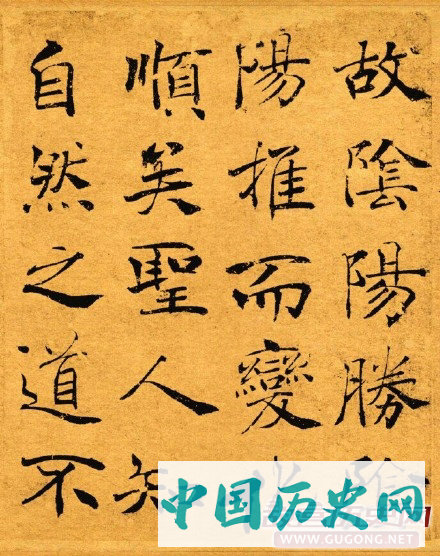 故陰陽勝
陽推而變
順矣聖人知
自然之道不
中国历史网
WWW.GUGONG.NET